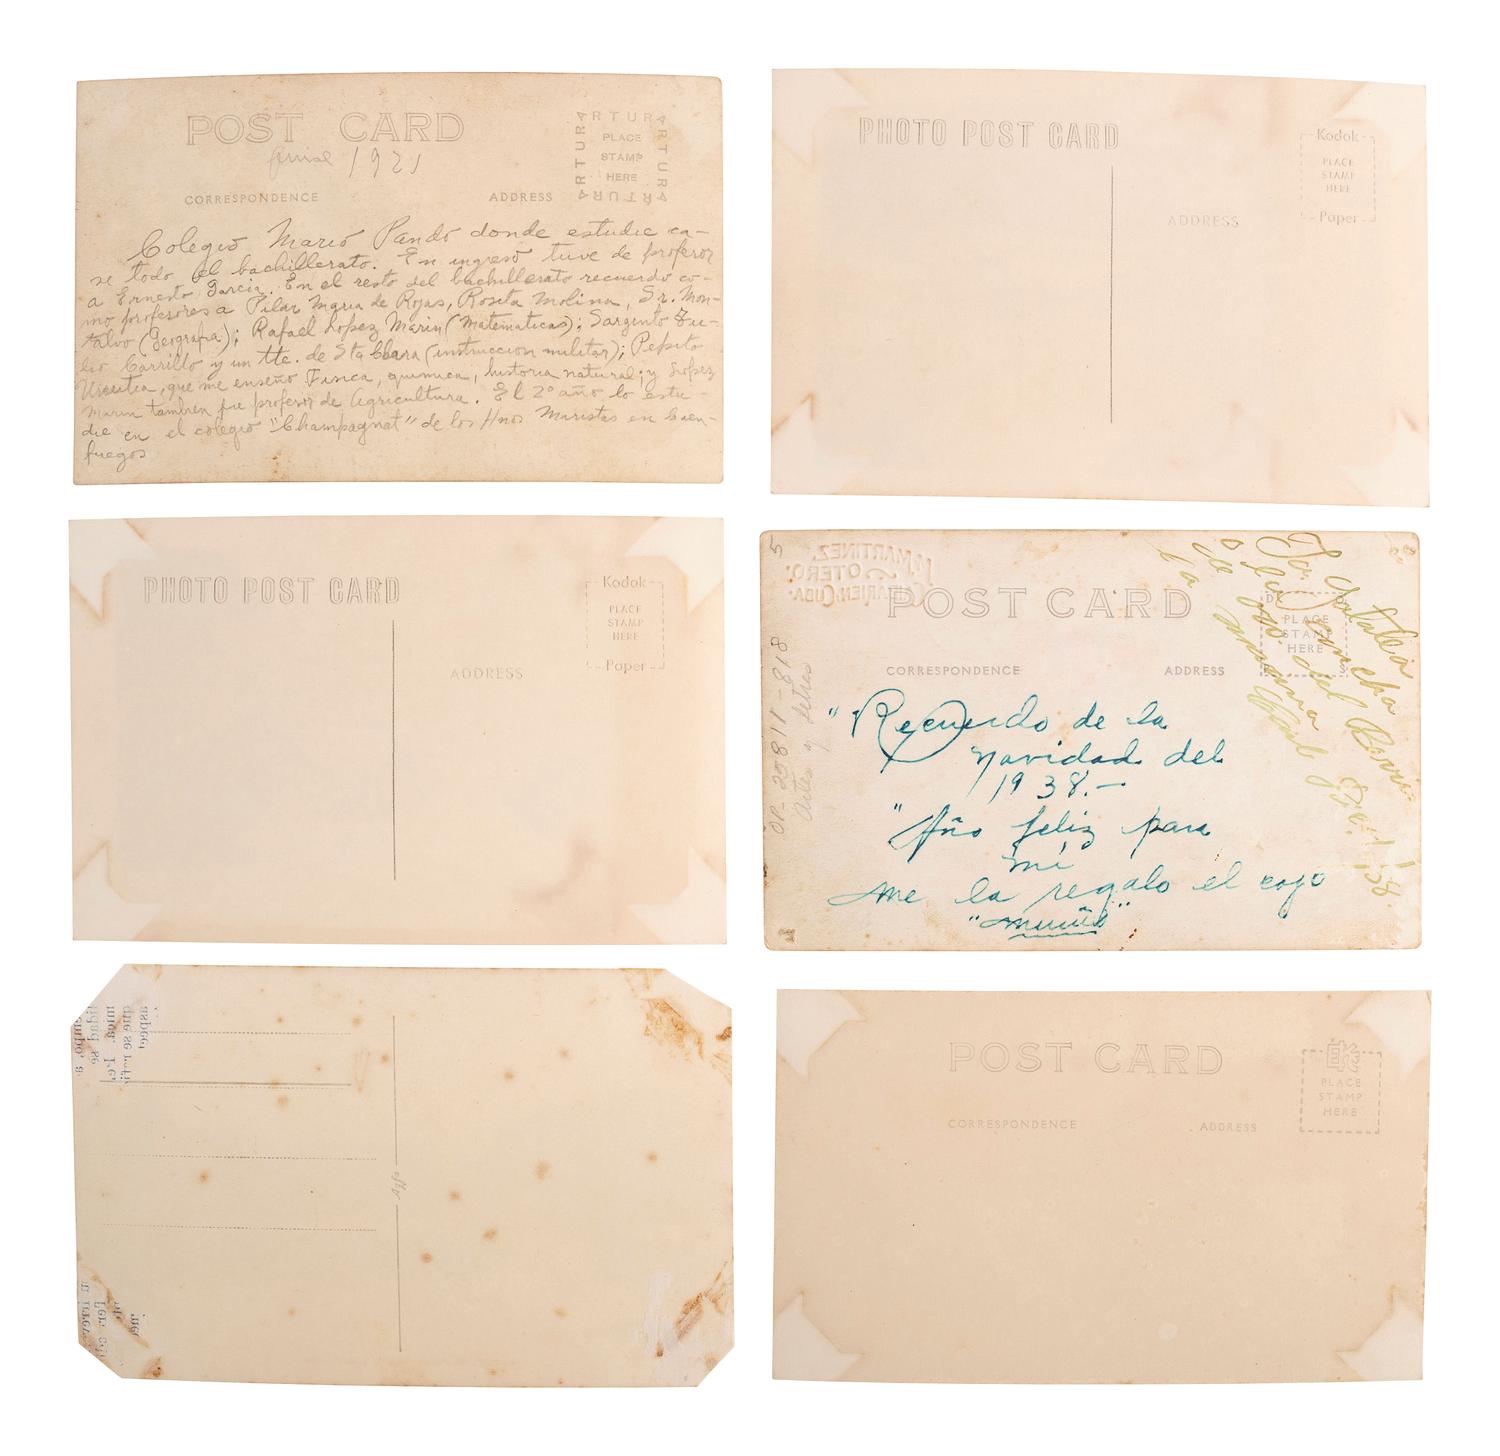 POST CARD
1921
ARTURA
ARTURA
ARTURA
ARTURA
PLACE
STAMP
HERE
CORRESPONDENCE
ADDRESS
Colegio Mario Pando donde estudie ca-
se todo el bachillerato. En ingreso tuve de profesor
a Ernesto Garcia. En el resto del bachillerato recuerdo co-
mo profesores a Pilar Maria de Rojas, Rosita Molina, Sr. Mon-
talvo (Geografia); Rafael Lopez Marin (Matematicas); Sargento Eu-
lio Carrillo y un tte. de Sta Clara (instruccion militar); Pepito
Urrutia, que me enseño Fisica, quimica, historia natural; y Lopez
Marin tambien fue profesor de Agricultura. El 2º año lo estu-
die en el colegio "Champagnat" de los Hnos Maristas en Cien-
fuegos
PHOTO POST CARD
Kodak
PLACE
STAMP
HERE
Paper
ADDRESS
PHOTO POST CARD
Kodak
PLACE
STAMP
HERE
Paper
ADDRESS
MARTINEZ
OTERO
CAIBARIEN, CUBA.
POST CARD
PLACE
STAMP
HERE
CORRESPONDENCE
ADDRESS
OP-20811-818
Artes y letras
"Recuerdo de la
navidad del
1938.-
"Año feliz para
mi
me la regalo el cojo
"Muñiz"
aspect
que se
lidad se
POST CARD
PLACE
STAMP
HERE
CORRESPONDENCE
ADDRESS